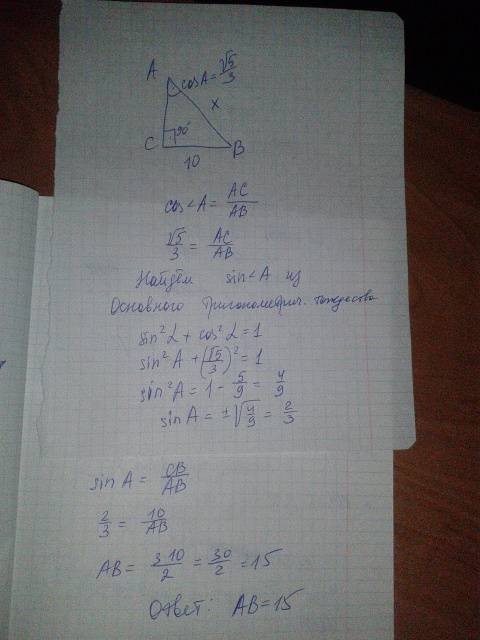 A
cos A = √5/3
x
C 90° B
10
cos∠A = AC/AB
√5/3 = AC/AB
Найдём sin∠A из
Основного Тригонометрич. тождества
sin²α + cos²α = 1
sin²A + (√5/3)² = 1
sin²A = 1 - 5/9 = 4/9
sin A = ±√4/9 = 2/3
sin A = CB/AB
2/3 = 10/AB
AB = 3·10/2 = 30/2 = 15
Ответ: AB = 15